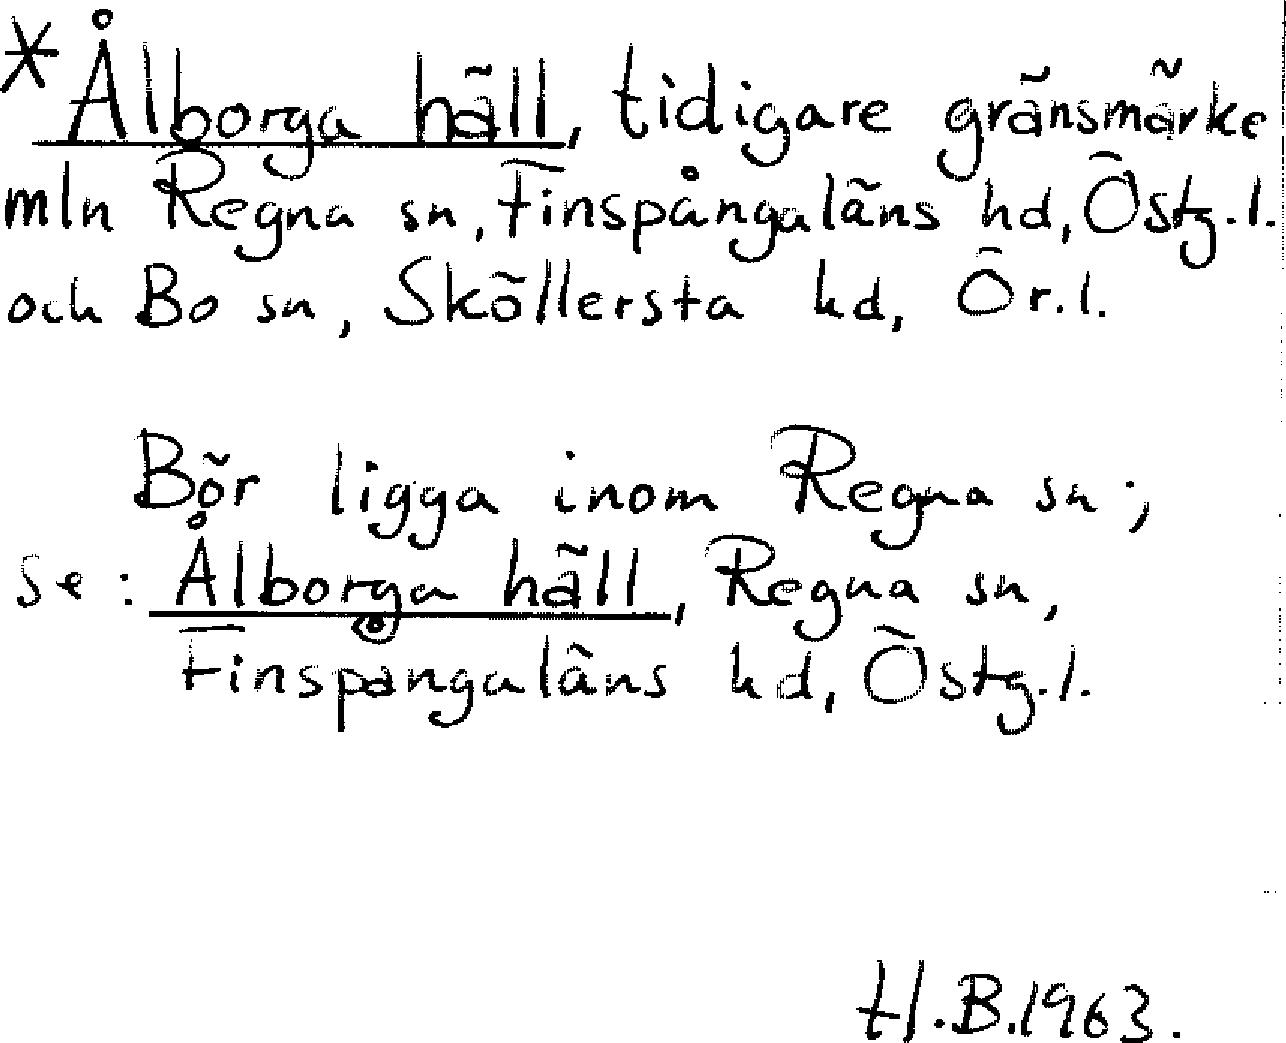 * Ålborga häll, tidigare gränsmärke
mln Regna sn, Finspångaläns hd, Östg.l.
och Bo sn, Sköllersta hd, Ör.l.
Bör ligga inom Regna sn;
se: Ålborga häll, Regna sn,
Finspångaläns hd, Östg.l.
H.B.1963.